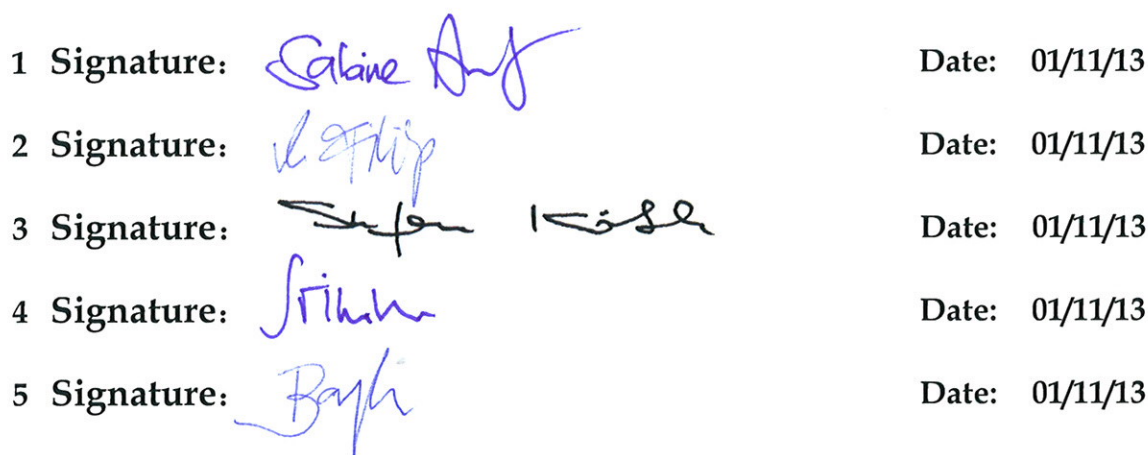 1 Signature: Sabine
Date: 01/11/13
2 Signature:
Date: 01/11/13
3 Signature: Stefan
Date: 01/11/13
4 Signature:
Date: 01/11/13
5 Signature:
Date: 01/11/13